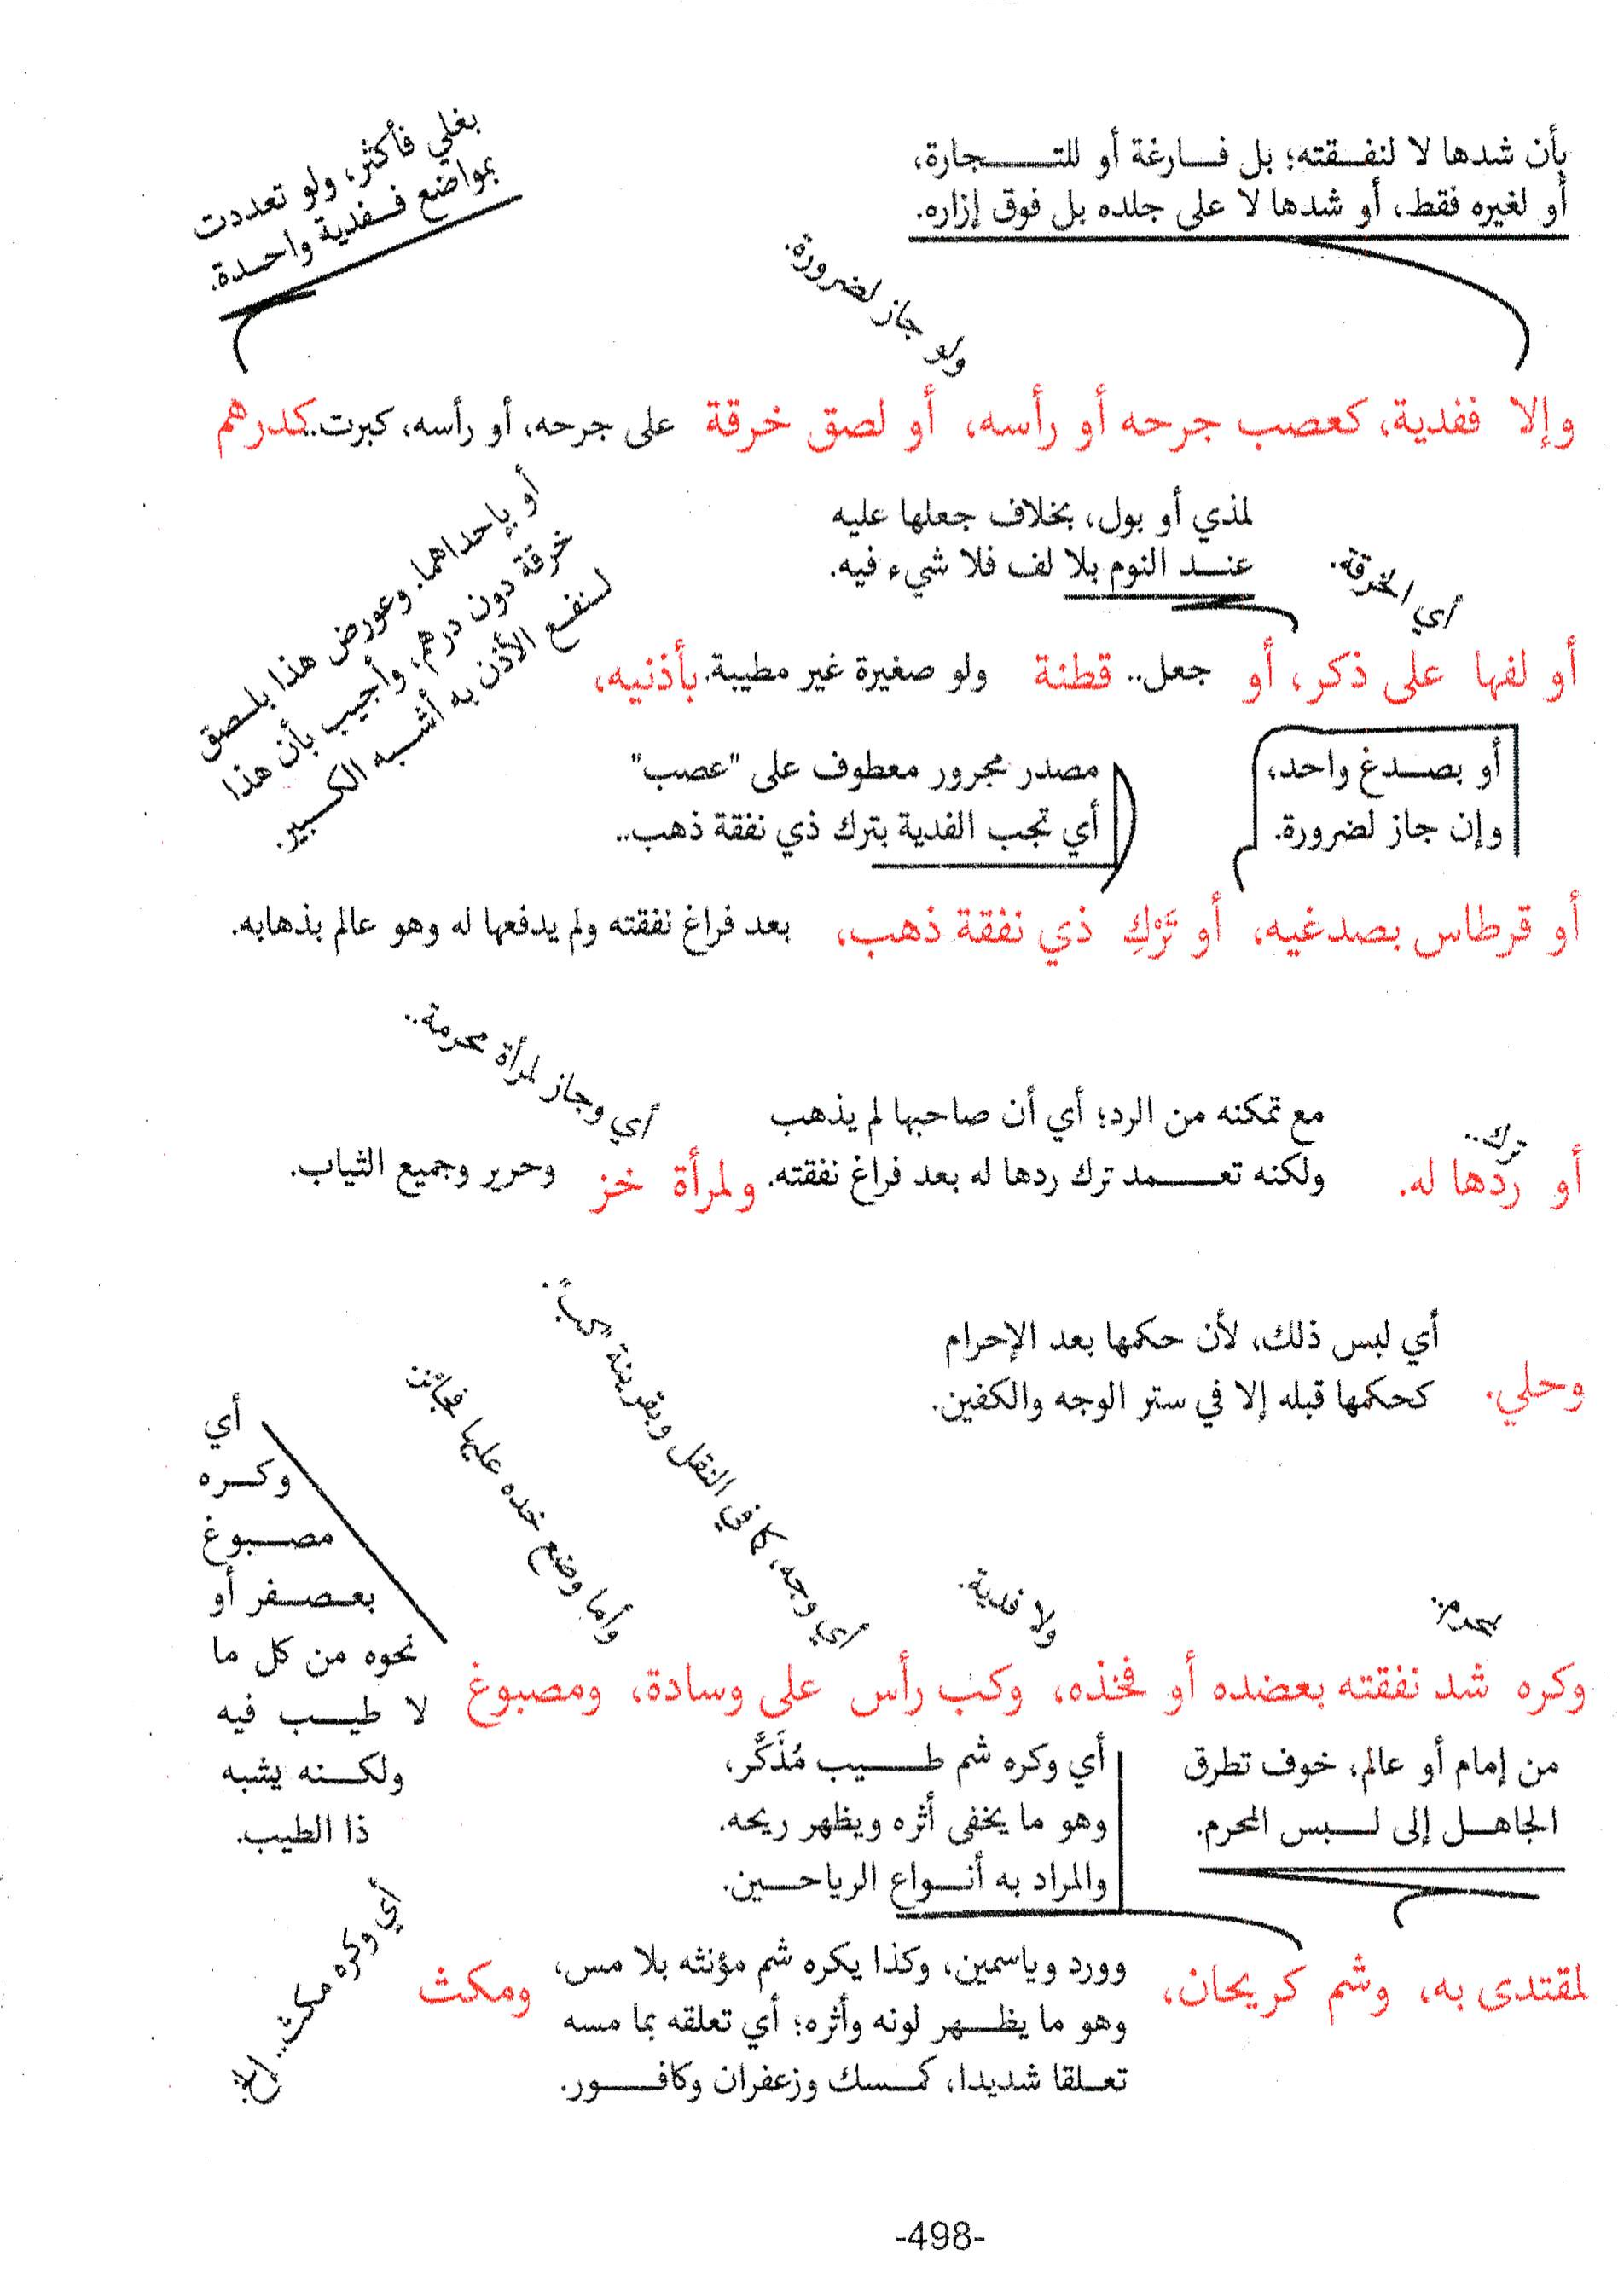 بأن شدها لا لنفقته؛ بل فارغة أو للتجارة،
أو لغيره فقط، أو شدها لا على جلده بل فوق إزاره.
بغلي فأكثر، ولو تعددت
بمواضع ففدية واحدة.
ولو جاز لضرورة.
وإلا ففدية، كعصب جرحه أو رأسه، أو لصق خرقة على جرحه، أو رأسه، كبرت.. كدرهم
لمذي أو بول، بخلاف جعلها عليه
عند النوم بلا لف فلا شيء فيه.
أي الخرقة.
أو بإحداهما. وعورض هذا بلصق
خرقة دون درهم، وأجيب بأن هذا
لنفع الأذن به أشبه الكبير.
أو لفها على ذكر، أو جعل.. قطنة ولو صغيرة غير مطيبة. بأذنيه،
أو بصدغ واحد،
وإن جاز لضرورة.
مصدر مجرور معطوف على "عصب"
أي تجب الفدية بترك ذي نفقة ذهب..
أو قرطاس بصدغيه، أو تَرْكِ ذي نفقة ذهب، بعد فراغ نفقته ولم يدفعها له وهو عالم بذهابه.
ترك..
مع تمكنه من الرد؛ أي أن صاحبها لم يذهب
ولكنه تعمد ترك ردها له بعد فراغ نفقته.
أي وجاز لمرأة محرمة..
أو ردها له. ولمرأة خز وحرير وجميع الثياب.
أي لبس ذلك، لأن حكمها بعد الإحرام
كحكمها قبله إلا في ستر الوجه والكفين.
وحلي.
لمحرم..
ولا فدية.
أي وجه، كما في النقل وبقرينة كبّ.
وأما وضع خده عليها فجائز
وكره شد نفقته بعضده أو فخذه، وكب رأس على وسادة، ومصبوغ
أي
وكره
مصبوغ
بعصفر أو
نحوه من كل ما
لا طيب فيه
ولكنه يشبه
ذا الطيب.
من إمام أو عالم، خوف تطرق
الجاهل إلى لبس المحرم.
أي وكره شم طيب مُذَكَّر،
وهو ما يخفى أثره ويظهر ريحه.
والمراد به أنواع الرياحين.
لمقتدى به، وشم كريحان، وورد وياسمين، وكذا يكره شم مؤنثه بلا مس، ومكث
وهو ما يظهر لونه وأثره؛ أي تعلقه بما مسه
تعلقا شديدا، كمسك وزعفران وكافور.
أي وكره مكث.. إلخ
-498-